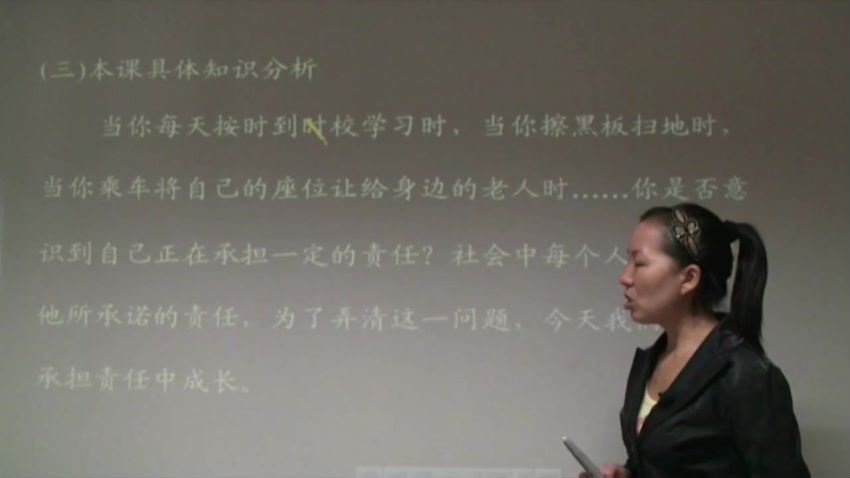 (三)本课具体知识分析
当你每天按时到时校学习时，当你擦黑板扫地时，
当你乘车将自己的座位让给身边的老人时……你是否意
识到自己正在承担一定的责任？社会中每个人
他所承诺的责任，为了弄清这一问题，今天我
承担责任中成长。